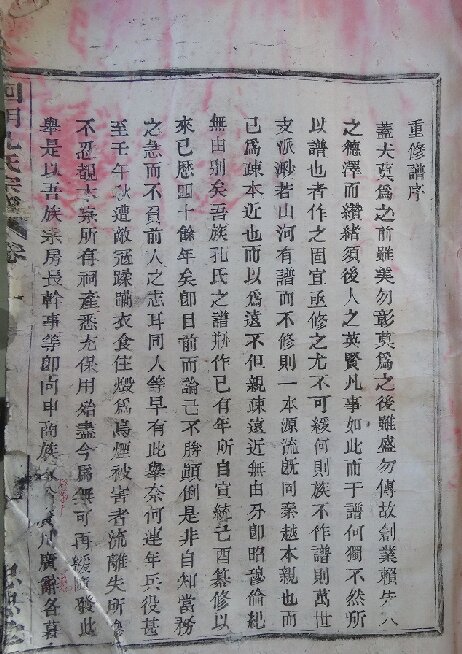 重修譜序
蓋夫莫爲之前雖美勿彰莫爲之後雖盛勿傳故創業賴先人
之德澤而纘緒須後人之英賢凡事如此而于譜何獨不然所
以譜也者作之固宜亟修之尤不可緩何則族不作譜則萬世
支派渺若山河有譜而不修則一本源流旣同秦越本親也而
已爲疎本近也而以爲遠不但親疎遠近無由分卽昭穆倫紀
無由别矣吾族孔氏之譜刱作已有年所自宣統己酉纂修以
來已歷四十餘年矣卽目前而論已不勝顚倒是非自知當務
之急而不負前人之志耳同人等早有此舉奈何連年兵役甚
至壬午秋遭敵冦蹂躪衣食住燬爲烏煙被害者流離失所
不忍覩本祭所有祠產悉充保用殆盡今爲無可再緩發此
舉是以吾族宗房長幹事等卽向申商族川廣辭各
孔氏宗譜 卷